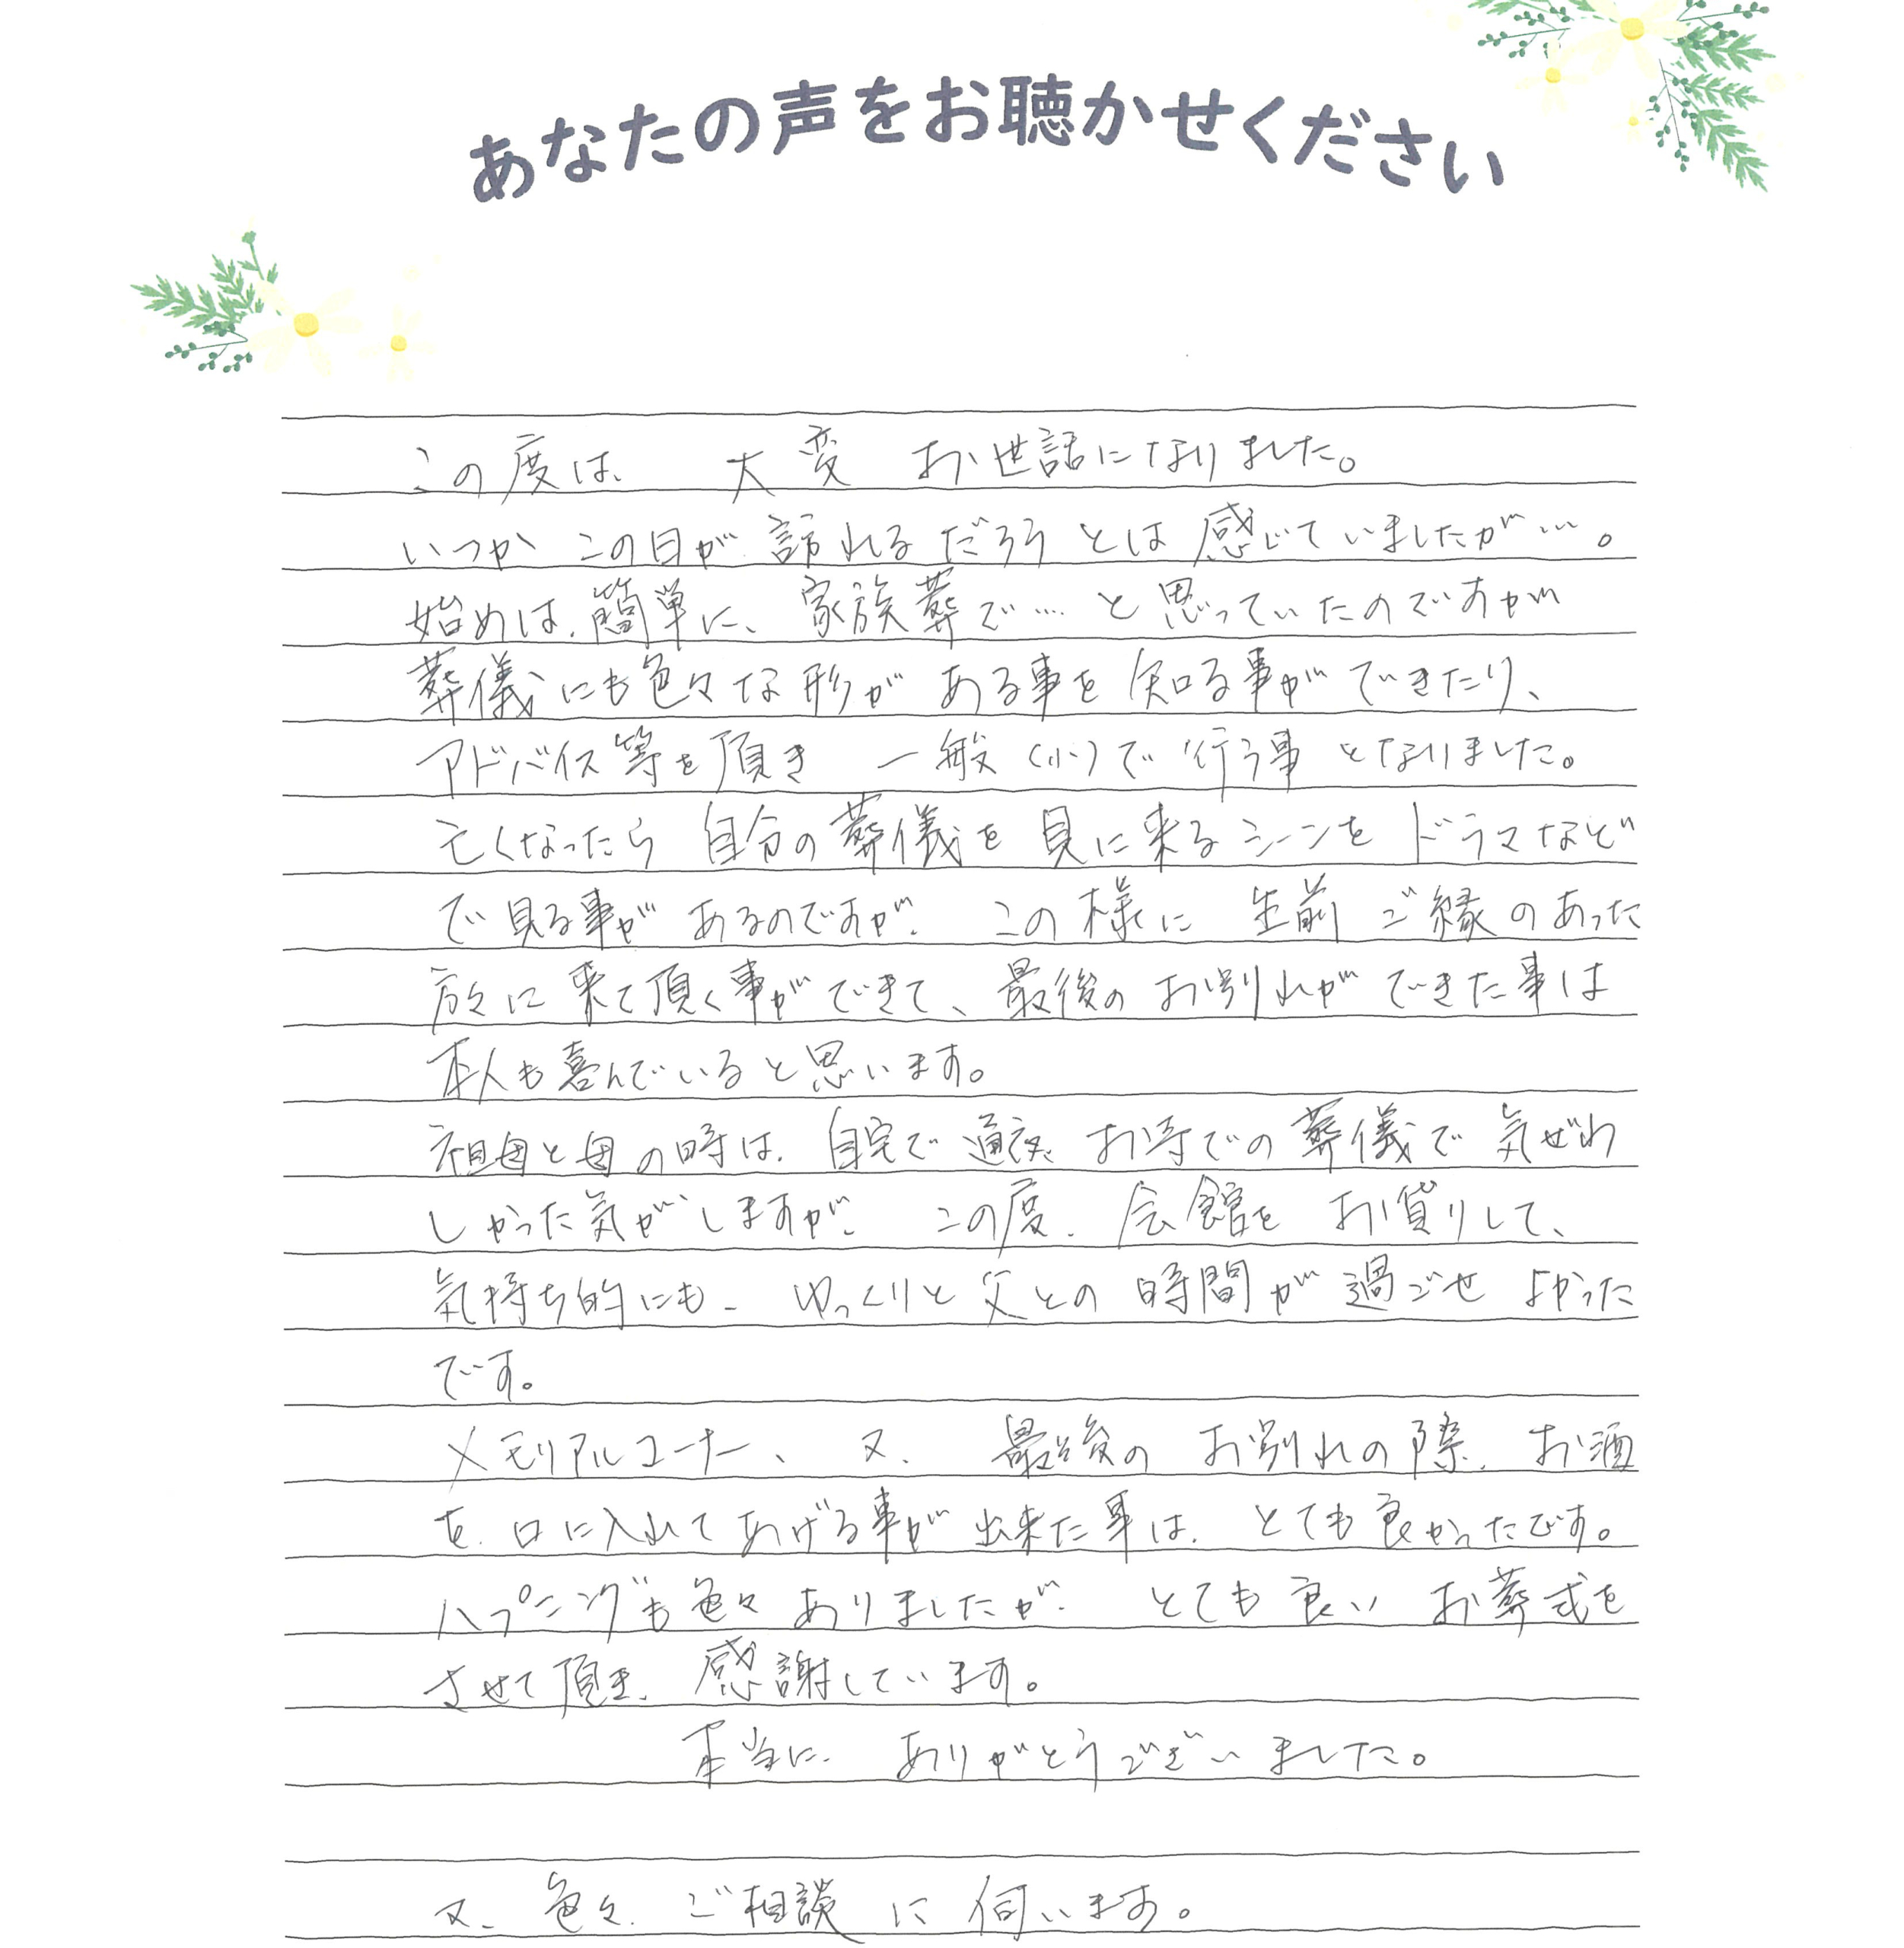 あなたの声をお聴かせください
この度は、 大変 お世話になりました。
いつか この日が 訪れるだろう とは 感じていましたが…。
始めは、簡単に、家族葬で… と思っていたのですが
葬儀にも色々な形が ある事を知る事ができたり、
アドバイス等を頂き 一般(小)で行う事 となりました。
亡くなったら 自分の葬儀を見に来るシーンを ドラマなど
で見る事が あるのですが、 この様に 生前 ご縁のあった
方々に来て頂く事ができて、最後の お別れが できた事は
本人も喜んでいると思います。
祖母と母の時は、自宅で通夜、お寺での葬儀で気ぜわ
しかった気がしますが、 この度、会館を お貸りして、
気持ち的にも、ゆっくりと父との 時間が 過ごせ よかった
です。
メモリアルコーナー、 又、 最後の お別れの際、お酒
を、口に入れてあげる事が 出来た事は、とても良かったです。
ハプニングも色々 ありましたが、 とても 良い お葬式を
させて頂き、感謝しています。
本当に、 ありがとうございました。
又、色々、ご相談 に 伺います。